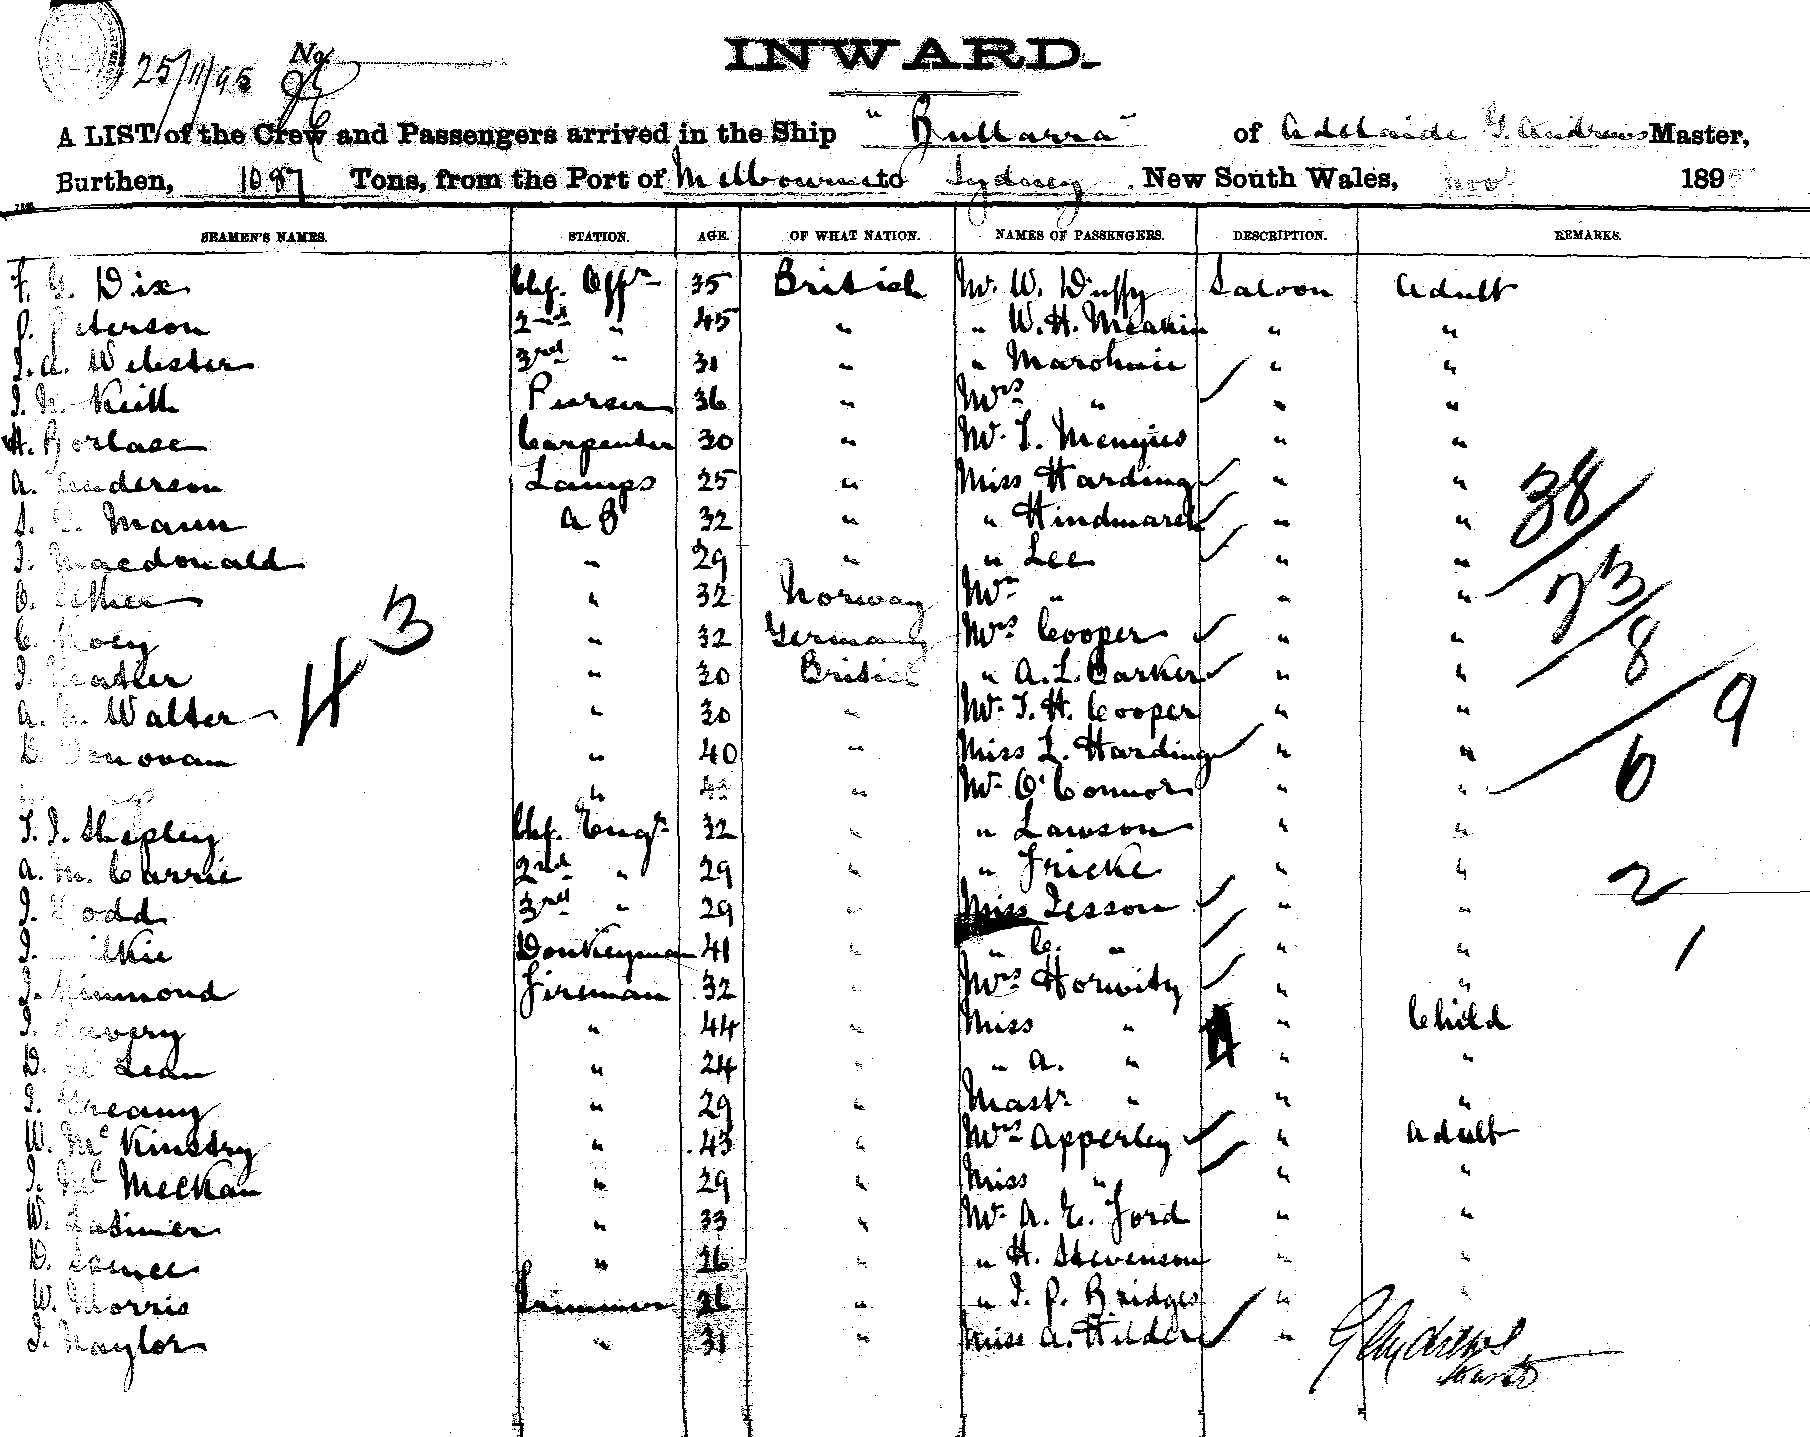 25/11/95 No
INWARD.
A LIST of the Crew and Passengers arrived in the Ship "Bullarra" of Adelaide G. Andrews Master,
Burthen, 1087 Tons, from the Port of Melbourne to Sydney, New South Wales, Nov 189
SEAMEN'S NAMES. STATION. AGE. OF WHAT NATION. NAMES OF PASSENGERS. DESCRIPTION. REMARKS.
F. G. Dix Chf. Offr 35 British Mr. W. Duffy Saloon Adult
P. Peterson 2nd " 45 " " W. H. Meakin " "
J. A. Webster 3rd " 31 " " " "
J. Keith Purser 36 " Mrs " " "
H. Borlase Carpenter 30 " Mr. T. Menzies " "
A. Anderson Lamps 25 " Miss Harding " "
Mann AB 32 " " Hindmarsh " "
J. Macdonald " 29 " " Lee " "
" 32 Norway Mr " " "
C. " 32 Germany Mrs Cooper " "
J. " 30 British " A. L. Barker " "
A. Walter " 30 " Mr. T. H. Cooper " "
D. Donovan " 40 " Miss L. Harding " "
" " Mr. O'Connor " "
T. J. Shepley Chf. Engr 32 " " Lawson " "
A. M. Currie 2nd " 29 " " Fricke " "
J. Dodd 3rd " 29 " Miss Lesson " "
J. Donkeyman 41 " " C. " " "
J. Fireman 32 " Mrs Horwitz " "
J. " 44 " Miss " " Child
D. McLean " 24 " " A. " " "
J. Greany " 29 " Mastr " " "
W. McKinstry " 43 " Mrs Apperley " Adult
J. " 29 " Miss " " "
W. Latimer " 33 " Mr. A. E. Ford " "
D. " " " H. Stevenson " "
W. Morris Trimmer 26 " " J. P. Bridges " "
J. Naylor " 31 " Miss A. Hilder "
43
38
73
8
9
6
2
1
G Andrews
Master